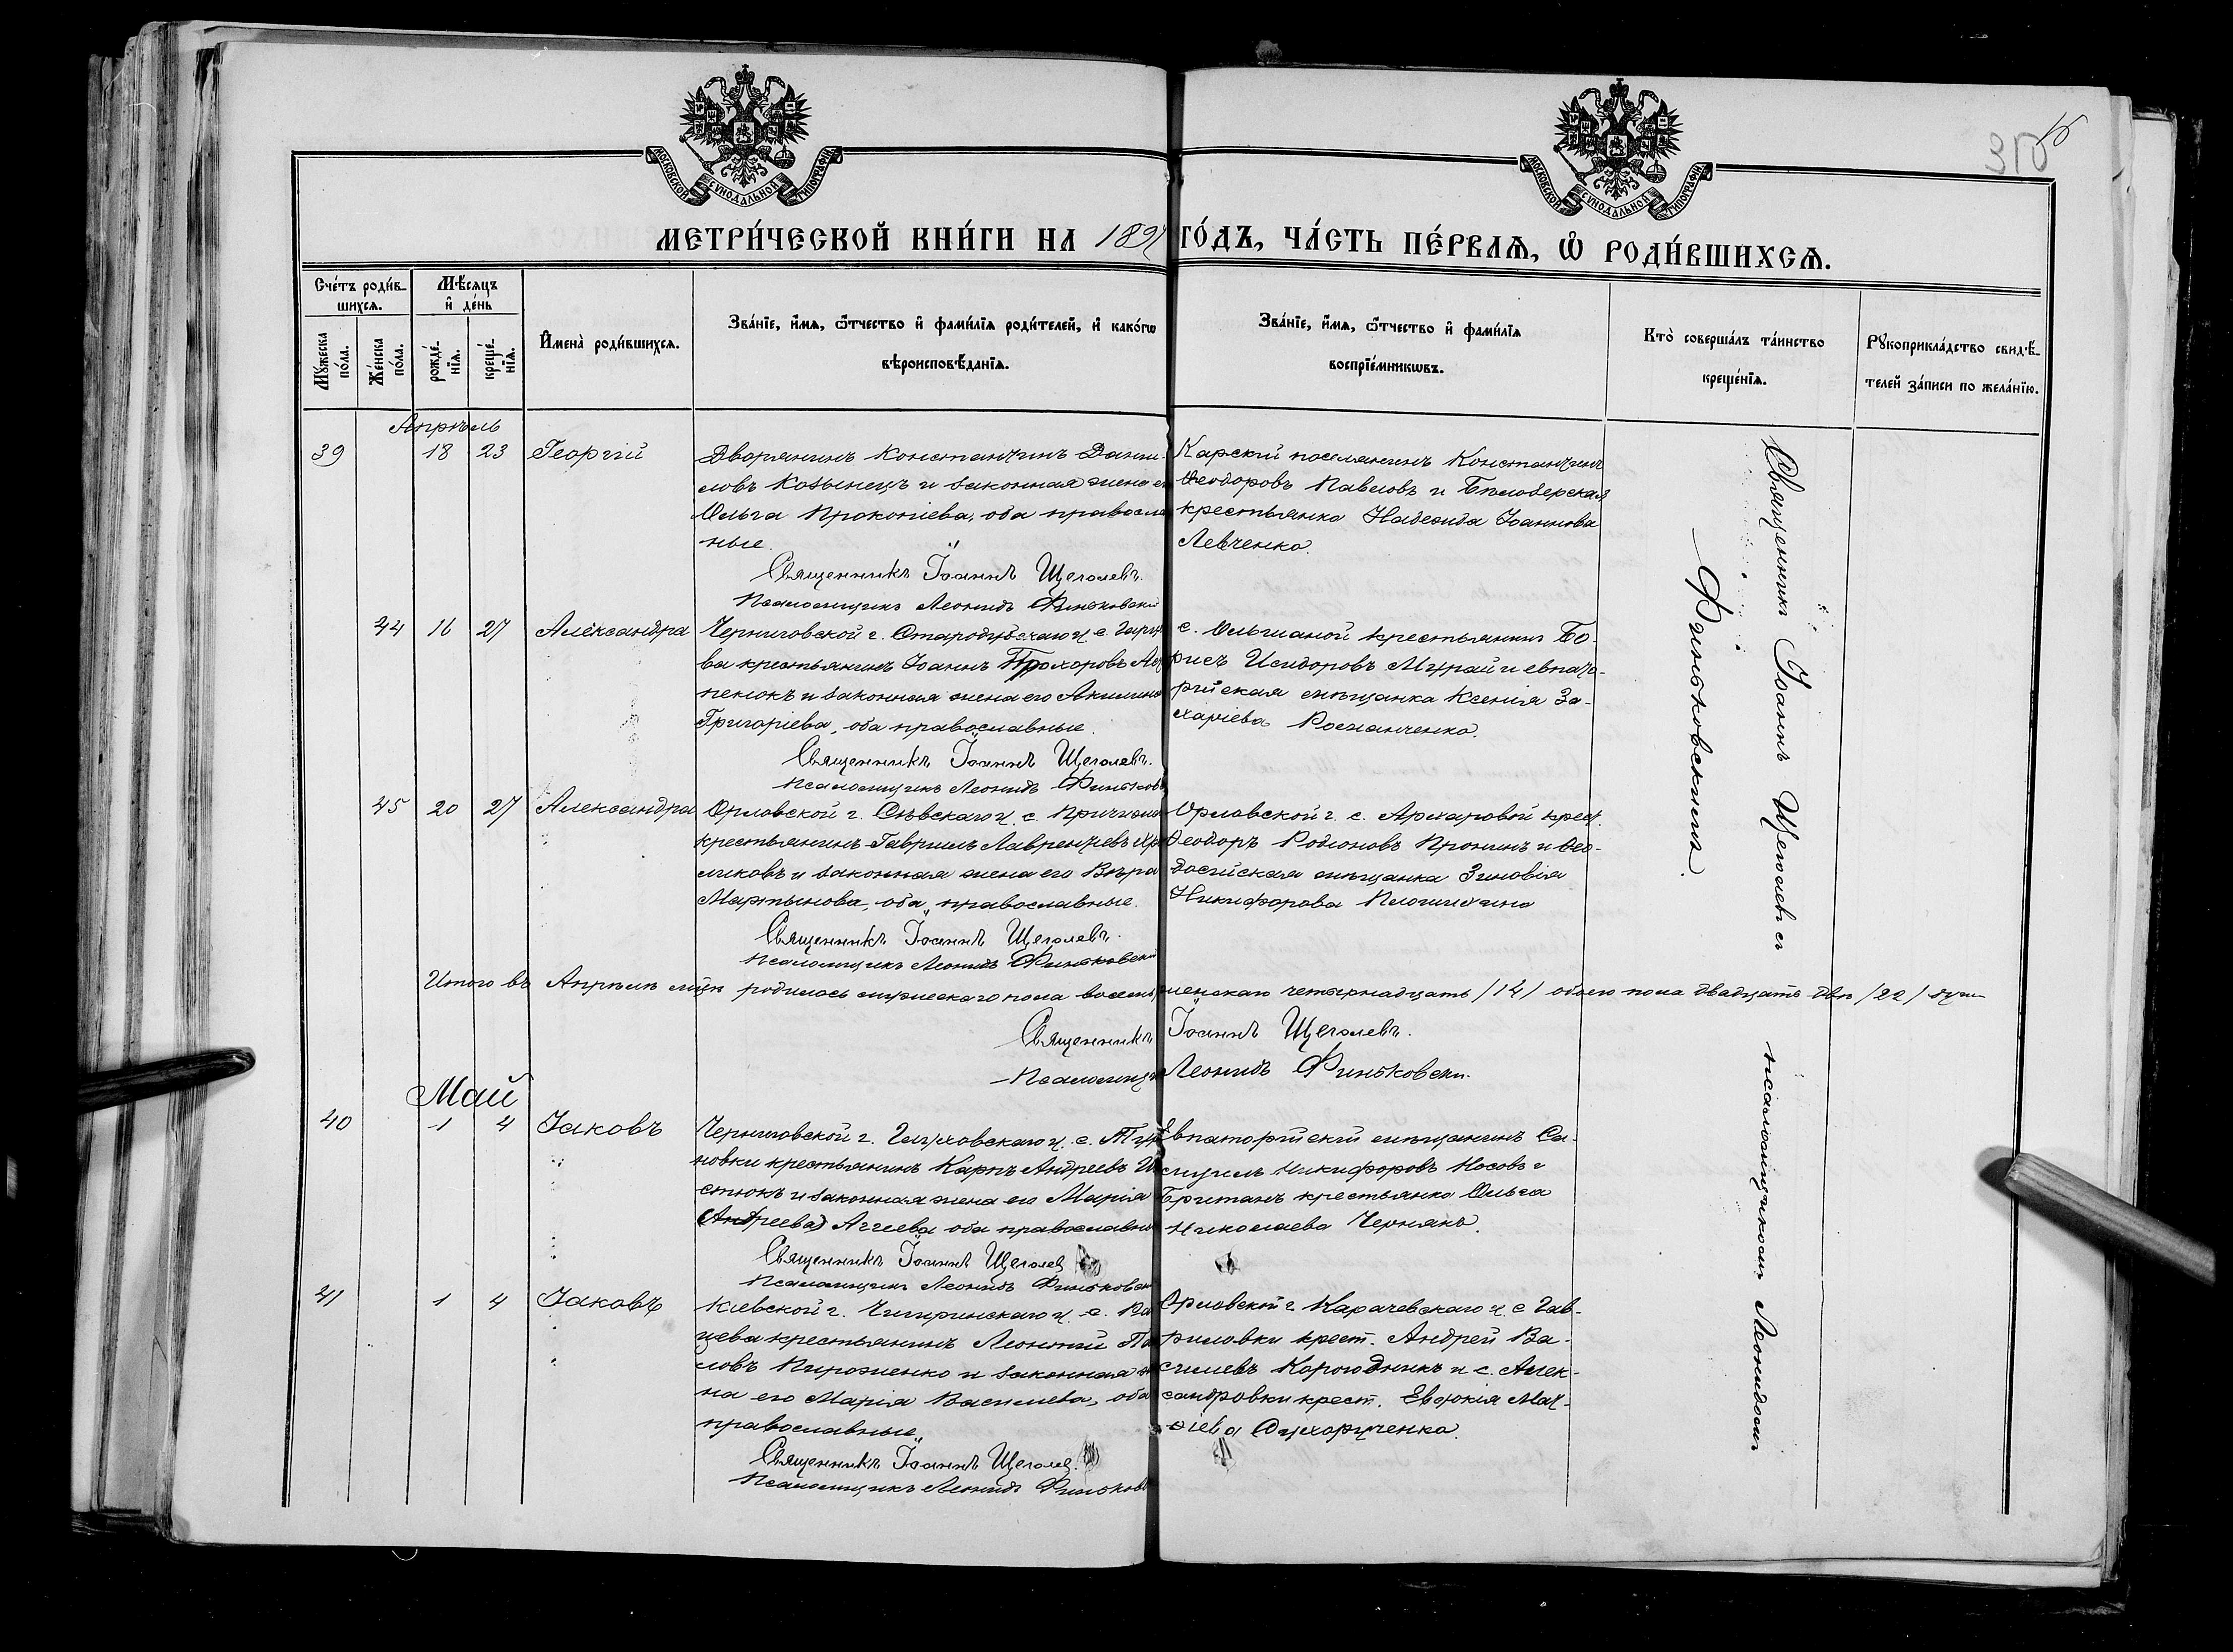 МОСКОВСКОЙ СѴНОДАЛЬНОЙ ТИПОГРАФІИ
МОСКОВСКОЙ СѴНОДАЛЬНОЙ ТИПОГРАФІИ
МЕТРИ́ЧЕСКОЙ КНИ́ГИ НА 1897 ГО́ДЪ, ЧА́СТЬ ПЕ́РВАѦ, Ѽ РОДИ́ВШИХСѦ.
Сче́тъ роди́вшихсѧ.
Мѣ́сѧцъ и҆ де́нь
Мꙋ́жеска по́ла.
Же́нска по́ла.
рожде́нїѧ.
креще́нїѧ.
И҆мена̀ роди́вшихсѧ.
Зва́нїе, и҆́мѧ, ѻ҆́тчество и҆ фами́лїѧ роди́телей, и҆ како́гѡ
вѣроисповѣ́данїѧ.
Зва́нїе, и҆́мѧ, ѻ҆́тчество и҆ фами́лїѧ
воспрїе́мникѡвъ.
Кто̀ соверша́лъ та́инство
креще́нїѧ.
Рꙋкоприкла́дство свидѣ́-
телей за́писи по жела́нїю.
Апрѣль
39 18 23 Георгій
Дворянинъ Константинъ Дани-
ловъ Козынецъ и законная жена
Ольга Прокопіева, оба правосла
ные.
Священникъ Іоаннъ Щеголевъ.
Псаломщикъ Леонидъ Финьковскій
Карскій поселянинъ Константинъ
Ѳеодоровъ Павловъ и Бѣлозерская
крестьянка Надежда Іоаннова
Левченко.
44 16 27 Александра
Черниговской г. Стародубскаго у. с.
ва крестьянинъ Іоаннъ Прохоровъ
пенокъ и законная жена его Акилина
Григоріева, оба православные.
Священникъ Іоаннъ Щеголевъ.
Псаломщикъ Леонидъ Финьков
с. Ольгиной крестьянинъ Бо-
рисъ Исидоровъ Мурай и евпато-
рійская мѣщанка Ксенія За-
харіева Росханченко.
45 20 27 Александра
Орловской г. Сѣвскаго у. с.
крестьянинъ Гавріилъ Лаврентіевъ
ликовъ и законная жена его Вѣра
Мартынова, оба православные.
Священникъ Іоаннъ Щеголевъ.
Псаломщикъ Леонидъ Финьковскій
Орловской г. с. Архаровой крест.
Ѳеодоръ Родіоновъ Пронинъ и Ѳео-
досійская мѣщанка Зиновія
Никифорова
Итого въ Апрѣлѣ мцѣ родилось мужескаго пола восемь женскаго четырнадцать /14/ обоего пола двадцать двѣ /22/ души
Священникъ Іоаннъ Щеголевъ.
Псаломщикъ Леонидъ Финьковскій
Май
40 1 4 Іаковъ
Черниговской г. Глуховскаго у. с.
новки крестьянинъ Карпъ Андреевъ
стюкъ и законная жена его Марія
(Андреева) Аггеева оба православны
Священникъ Іоаннъ Щеголев
Псаломщикъ Леонидъ Финьковск
Евпаторійскій мѣщанинъ Са-
муилъ Никифоровъ Носовъ и
Британь крестьянка Ольга
Николаева Чернякъ.
41 1 4 Іаковъ
Кіевской г. Чигиринскаго у. с. Ра
цева крестьянинъ Леонтій Па
ловъ Пироженко и законная же
на его Марія Васильева, оба
православные.
Священникъ Іоаннъ Щеголев
Псаломщикъ Леонидъ Финьков
Орловской г. Карачевскаго у. с. Гав-
риловки крест. Андрей Ва-
сильевъ Корогодникъ и с. Алек-
сандровки крест. Евфокія Мат-
ѳіева Сухорученко.
Священникъ Іоаннъ Щеголевъ съ псаломщикомъ Леонидомъ
Финьковскимъ.